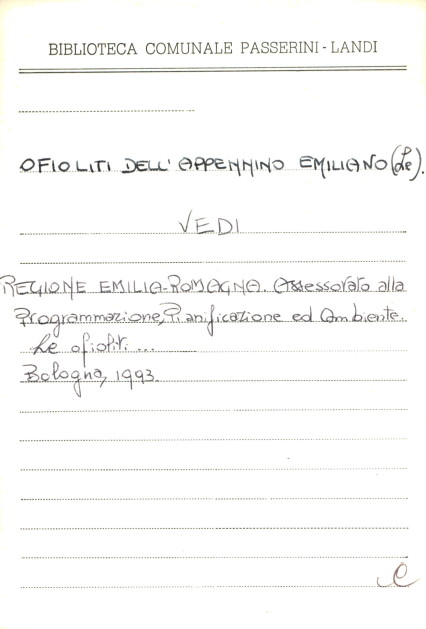 BIBLIOTECA COMUNALE PASSERINI - LANDI
OFIOLITI DELL' APPENNINO EMILIANO (Le).
VEDI
REGIONE EMILIA-ROMAGNA. Assessorato alla
Programmazione, Pianificazione ed Ambiente.
Le ofioliti ...
Bologna, 1993.